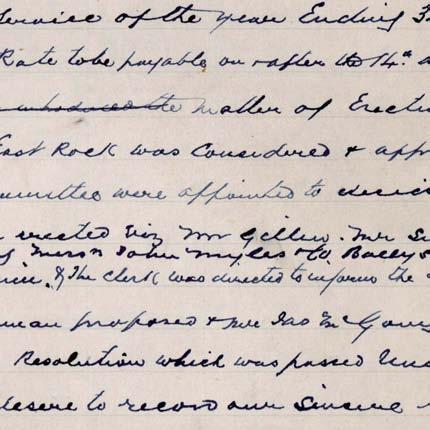 Service of the year Ending 3
Rate to be payable on & after the 14th a
introduced the Matter of Erecti
East Rock was Considered & appr
committee were appointed to decid
erected viz Mr Gillen. Mr S
of Messrs John Myles & Co. Ballys
& The Clerk was directed to inform the
man proposed & Mr Jas McGover
Resolution which was passed Una
desire to record our Sincere